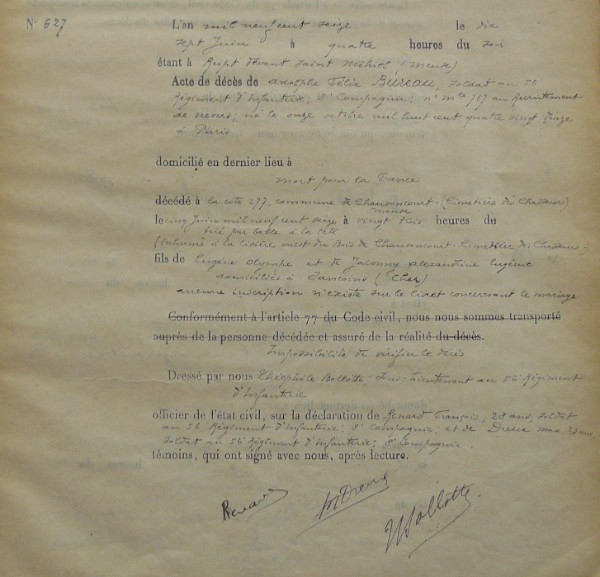 N° 627
L'an mil neuf cent seize le dix
sept Juin à quatre heures du soir
étant à Rupt devant Saint Mihiel (Meuse)
Acte de décès de Adolphe Félix Bureau, soldat au 56
Régiment d'Infanterie; 8e Compagnie; n° mle 767 au Recrutement
de Nevers; né le onze octobre mil huit cent quatre vingt quinze
à Paris
domicilié en dernier lieu à
mort pour la France
décédé à la cote 277, commune de Chauvoncourt (Cimetière des Chasseurs)
Meuse
le cinq Juin mil neuf cent seize à vingt trois heures du
tué par balle à la tête
(Inhumé à la lisière ouest du Bois de Chauvoncourt. Cimetière des Chasseurs.
fils de Eugène Olympe et de Jaconny Alexandrine Eugénie
domiciliés à Sancoins (Cher)
aucune inscription n'existe sur le livret concernant le mariage
Conformément à l'article 77 du Code civil, nous nous sommes transporté
auprès de la personne décédée et assuré de la réalité du décès.
Impossibilité de vérifier le décès
Dressé par nous Théophile Bollotte Sous-Lieutenant au 56 Régiment
d'Infanterie
officier de l'état civil, sur la déclaration de Renard François, 28 ans, soldat
au 56 Régiment d'Infanterie; 8e Compagnie, et de Dreux Max, ans,
soldat au 56 Régiment d'Infanterie; 8e Compagnie.
témoins, qui ont signé avec nous, après lecture.
Renard M Dreux Bollotte